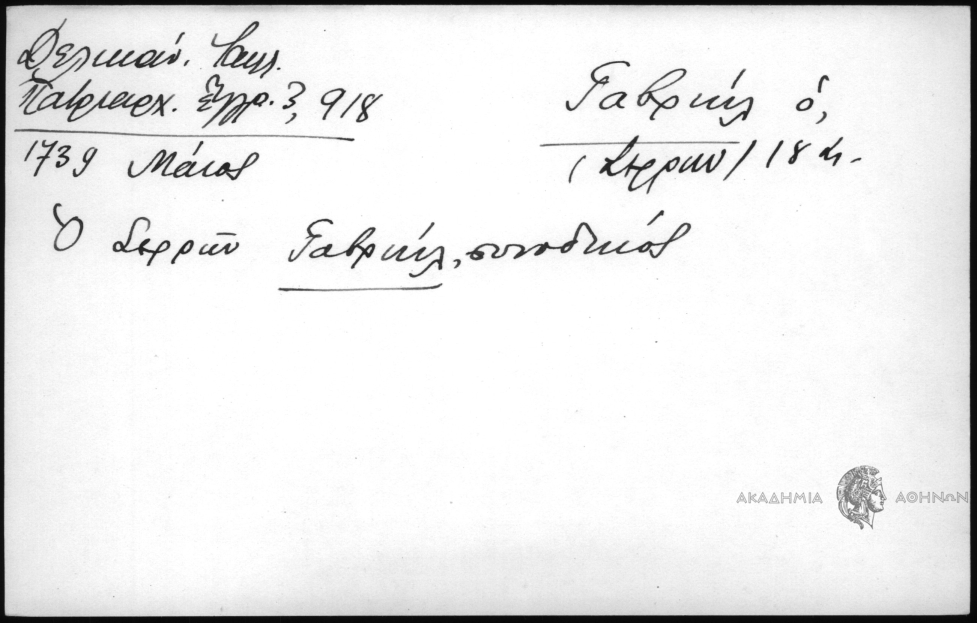 Δελικάν. Καλλ.
Πατριαρχ. Ἔγγρ. 3, 918
1739 Μάιος
Γαβριήλ ὁ,
(Σερρῶν) 18 αι.
Ὁ Σερρῶν Γαβριήλ, συνοδικός
ΑΚΑΔΗΜΙΑ ΑΘΗΝΩΝ